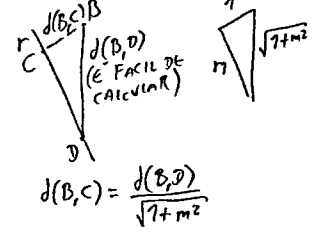 d(B,C) B
r
C
d(B,D)
(E' FACIL DE
CALCULAR)
D
1
m
√1+m²
d(B,C) = d(B,D) / √1+m²